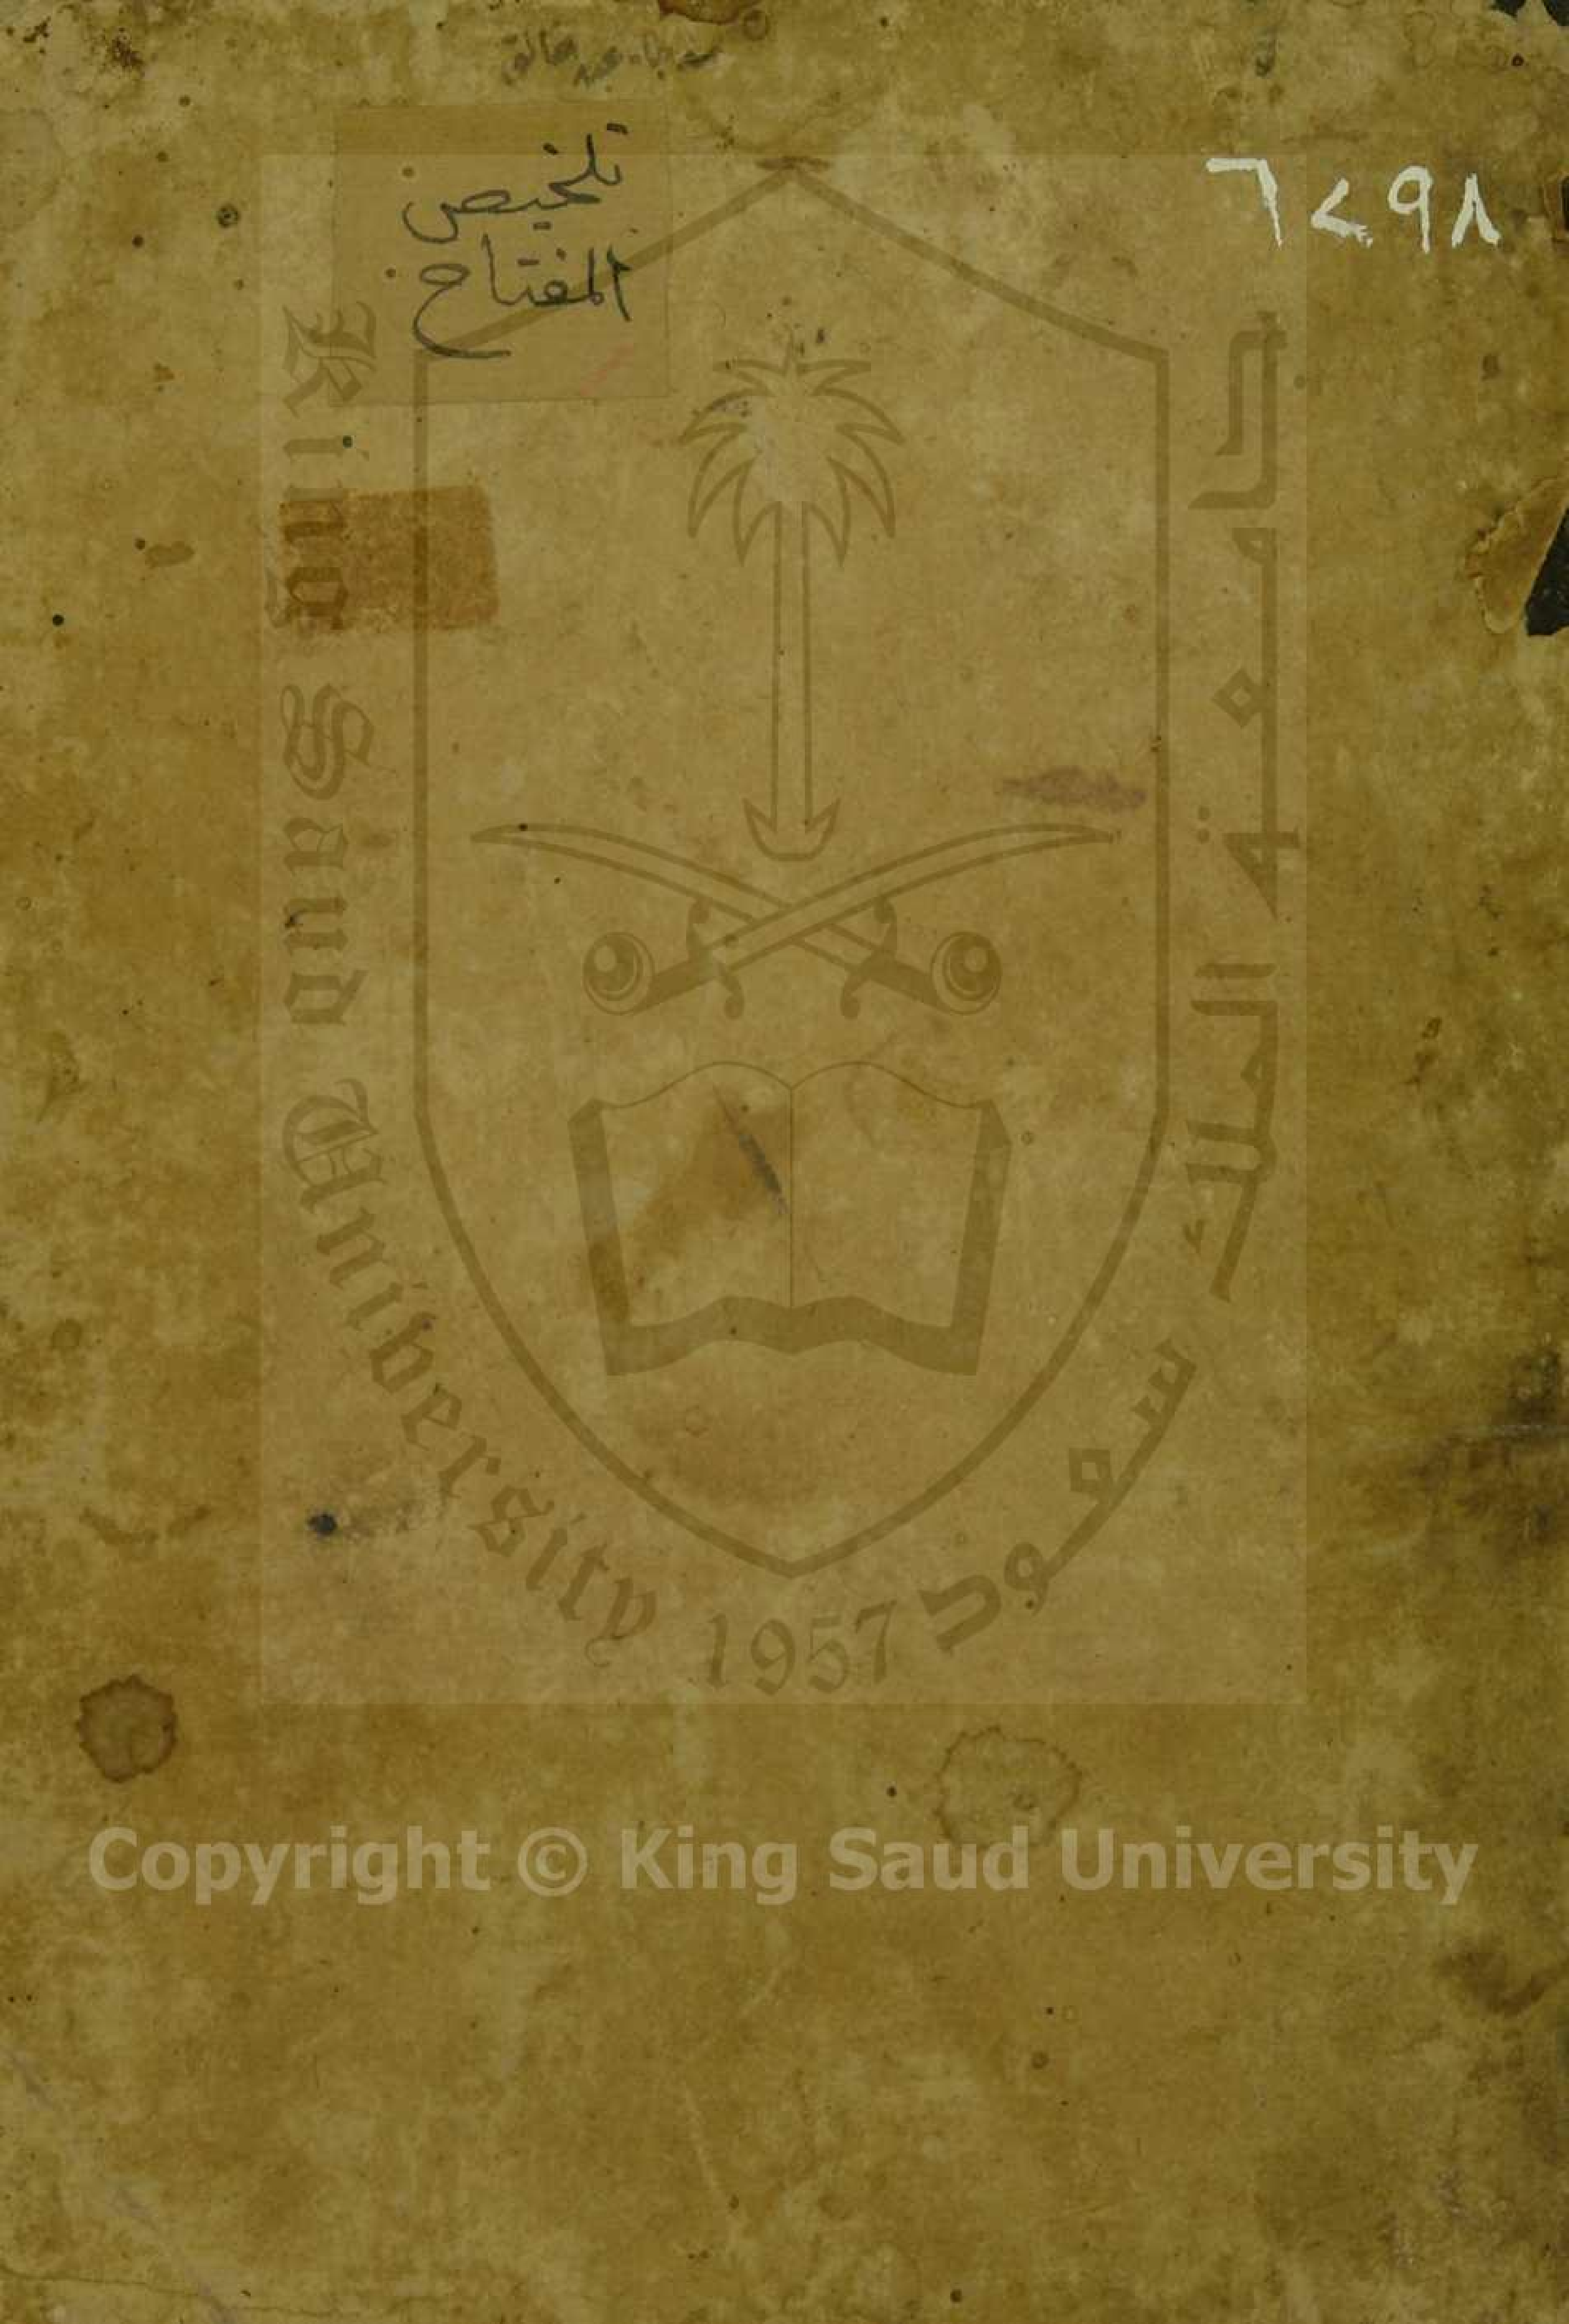 ٦٢٩٨
تلخيص
المفتاح
King Saud University
1957
جامعة الملك سعود
Copyright © King Saud University